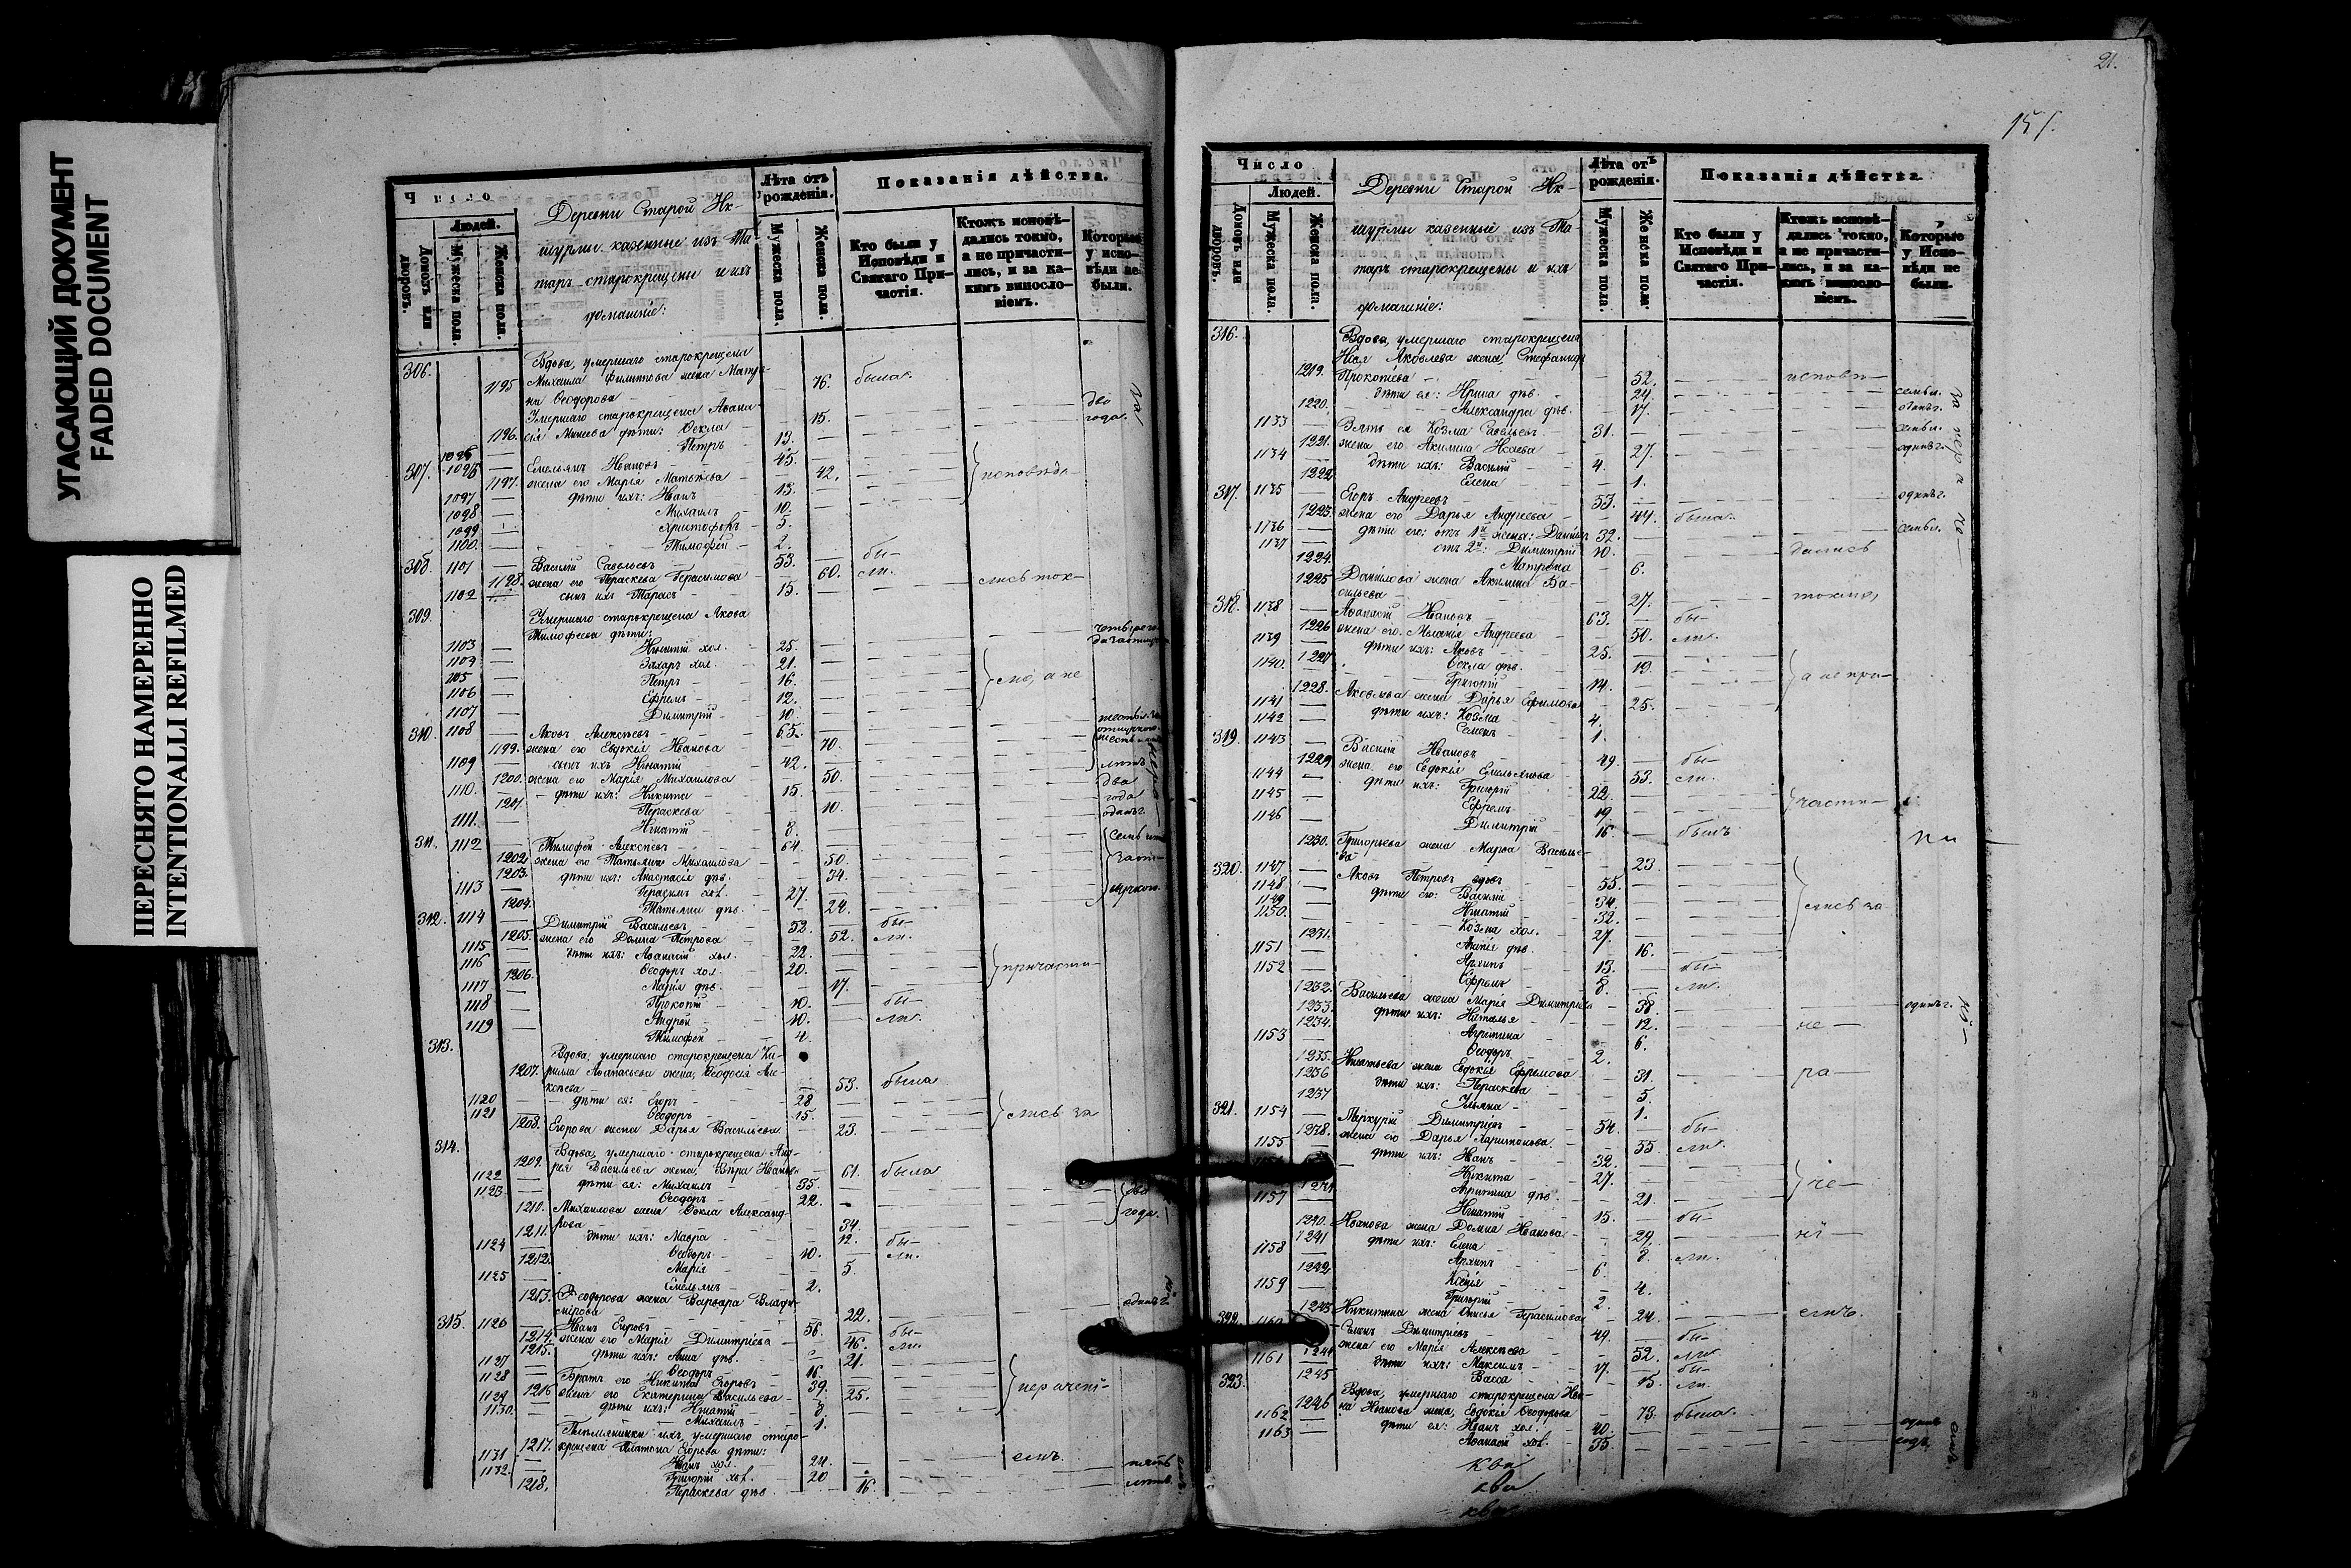 УГАСАЮЩИЙ ДОКУМЕНТ
FADED DOCUMENT
ПЕРЕСНЯТО НАМЕРЕННО
INTENTIONALLI REFILMED
Число
Людей.
Домовъ или дворовъ.
Мужеска пола.
Женска пола.
Деревни Старой Ик-
шурмы казенные изъ Та
таръ старокрещены и ихъ
домашніе:
Лѣта отъ рожденія.
Мужеска пола.
Женска пола.
Показанія дѣйства.
Кто были у Исповѣди и Святаго Причастія.
Ктожъ исповѣ-дались токмо, а не причасти-лись, и за ка-кимъ винослов-іемъ.
Которые у испо-вѣди не были.
306. Вдова, умершаго старокрещена
1195 Михаила Филиппова жена Матре-
на Ѳеодорова 76. была.
Умершаго старокрещена Аѳана-
1196. сія Минеева дѣти: Ѳекла 15. два года.
Петръ 13.
307. 1096 Емельянъ Ивановъ 45.
1197. жена его Марія Матвѣева 42. исповѣда-
1097 дѣти ихъ: Иванъ 13.
1098 Михаилъ 10.
1099 Христофоръ 5.
1100. Тимофей 2.
308. 1101 Василій Савельевъ 53. бы-
1198. жена его Параскева Герасимова 60. ли.
1102 сынъ ихъ Тарасъ 15. лись ток-
309. Умершаго старокрещена Якова
Тимофеева дѣти:
1103 Игнатій хол. 25.
1104 Захаръ хол. 21.
1105 Петръ 16. мо, а не
1106 Ефремъ 12.
1107 Димитрій 10.
310. 1108 Яковъ Алексѣевъ 65.
1199. жена его Евдокія Иванова 70.
1109 сынъ ихъ Игнатій 42. лѣтъ
1200. жена его Марія Михаилова 50. два
1110. дѣти ихъ: Никита 15. года
1201. Параскева 10. одинъ г.
1111. Игнатій 8.
311. 1112 Тимофей Алексѣевъ 64.
1202. жена его Татьяна Михаилова 50.
1203. дѣти ихъ: Анастасія дѣв. 34.
1113 Герасимъ хол. 27.
1204. Татьяна дѣв. 24.
312. 1114 Димитрій Васильевъ 52. бы-
1205. жена его Домна Петрова 52. ли.
1115 дѣти ихъ: Аѳанасій хол. 22.
1116 Ѳеодоръ хол. 20. причасти-
1206. Марія дѣв. 17.
1117 Прокопій 10. бы-
1118 Андрей 10. ли.
1119 Тимофей 4.
313. Вдова, умершаго старокрещена Ки-
1207. рилла Аѳанасьева жена, Ѳеодосія Але-
ксѣева 53. была
1120 дѣти ея: Егоръ 28
1121 Ѳеодоръ 15. лись за
1208. Егорова жена Дарья Васильева 23.
314. Вдова, умершаго старокрещена Анд-
1209. рея Васильева жена, Вѣра Иванова 61. была
1122 дѣти ея: Михаилъ 35.
1123. Ѳеодоръ 22. два
1210. Михаилова жена Ѳекла Александ-
рова 34. года.
1211. дѣти ихъ: Мавра 12. бы-
1124 Ѳеодоръ 10. ли.
1212. Марія 5.
1125 Емельянъ 2.
1213. Ѳеодорова жена Варвара Влади-
мірова 22. одинъ г.
315. 1126 Иванъ Егоровъ 56. бы-
1214. жена его Марія Димитріева 46. ли.
1215. дѣти ихъ: Анна дѣв. 21.
1127 Ѳеодоръ 16.
1128 Братъ его Никита Егоровъ 39.
1216 жена его Екатерина Васильева 25.
1129 дѣти ихъ: Игнатій 8.
1130. Михаилъ 1.
Племянники ихъ, умершаго старо-
1217. крещена Платона Егорова дѣти:
1131 Иванъ хол. 24. емъ. пять
1132. Григорій хол. 20 лѣтъ.
1218. Параскева дѣв. 16.
21.
151.
Число
Людей.
Домовъ или дворовъ.
Мужеска пола.
Женска пола.
Деревни Старой Ик-
шурмы казенные изъ Та-
таръ старокрещены и ихъ
домашніе:
Лѣта отъ рожденія.
Мужеска пола.
Женска пола.
Показанія дѣйства.
Кто были у Исповѣди и Святаго При-частія.
Ктожъ исповѣ-дались токмо, а не причасти-лись, и за ка-кимъ винослов-іемъ.
Которые у Испо-вѣди не были.
316. Вдова, умершаго старокрещена
Исая Яковлева жена, Стефанида
1219. Прокопіева 52. исповѣ-
дѣти ея: Ирина дѣв. 24.
1220. Александра дѣв. 17.
1133 Зять ея Козма Савельевъ 31.
1221. жена его Акилина Исаева 27.
1134 дѣти ихъ: Василій 4.
1222. Елена 1.
317. 1135 Егоръ Андреевъ 53. одинъ г.
1223. жена его Дарья Андреева 44. была.
1136 дѣти его: отъ 1й жены: Даніилъ 32.
1137 отъ 2й: Димитрій 10. дались
1224. Матрона 6.
1225 Данилова жена Акилина Ва-
сильева 27. токмо,
318. 1138 Аѳанасій Ивановъ 63. бы-
1226 жена его Меланія Андреева 50. ли.
1139 дѣти ихъ: Яковъ 25.
1227 Ѳекла дѣв. 19.
1140. Григорій 14. а не при-
1228. Яковлева жена Дарья Ефимова 25.
1141 дѣти ихъ: Козма 4.
1142 Семенъ 1.
319. 1143 Василій Ивановъ 49. бы-
1229 жена его Евдокія Емельянова 53. ли.
1144 дѣти ихъ: Григорій 22.
1145 Ефремъ 19 части-
1146 Димитрій 16. былъ
1230. Григорьева жена Марѳа Василье-
ва 23.
320. 1147 Яковъ Петровъ вдовъ 55.
1148 дѣти его: Василій 34.
1149 Игнатій 32. лись за
1150. Козма хол. 27.
1231. Анна дѣв. 16.
1151 Архипъ 13. бы-
1152 Ефремъ 8. ли.
1232. Васильева жена Марія Димитріева 38. одинъ г.
1233. дѣти ихъ: Наталья 12. не
1234. Агрипина 6.
1153 Ѳеодоръ 2.
1235. Игнатьева жена Евдокія Ефремова 31. ра-
1236 дѣти ихъ: Параскева 5.
1237 Ульяна 1.
321. 1154 Меркурій Димитріевъ 54. бы-
1238. жена его Дарья Харитонова 55 ли.
1155 дѣти ихъ: Иванъ 32.
Никита 27.
Агрипина дѣв. 21. че-
1157 Игнатій 15. бы-
1240. Иванова жена Домна Иванова 29. ні-
1241 дѣти ихъ: Елена 8. ли.
1158 Архипъ 6.
1242 Ксенія 4.
1159 Григорій 2.
1243 Никитина жена Анисья Герасимова 24. емъ.
322. 1160 Семенъ Димитріевъ 49. бы-
1244 жена его Марія Алексѣева 52. ли
1161 дѣти ихъ: Максимъ 17. бы-
1245 Васса 15. ли.
323. Вдова, умершаго старокрещена Ива-
1246 на Иванова жена, Евдокія Ѳеодорова 73. была.
1162 дѣти ея: Иванъ хол. 40. одинъ
1163 Аѳанасій хол. 35. годъ